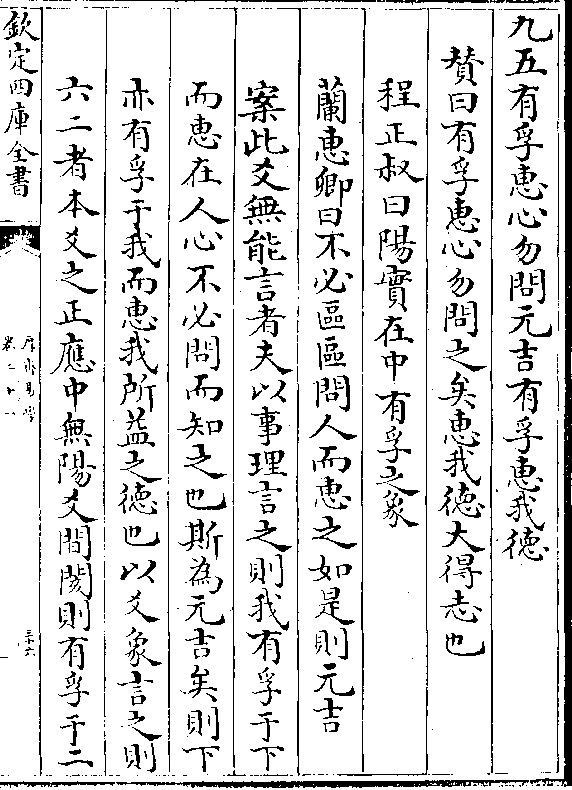 九五有孚恵心勿問元吉有孚恵我徳
賛曰有孚恵心勿問之矣恵我徳大得志也
程正叔曰陽實在中有孚之象
蘭恵卿曰不必區區問人而恵之如是則元吉
案此爻無能言者夫以事理言之則我有孚于下
而恵在人心不必問而知之也斯為元吉矣則下
亦有孚于我而恵我所益之徳也以爻象言之則
六二者本爻之正應中無陽爻間閡則有孚于二
欽定四庫全書
厚齋易學
卷二十一
三十六